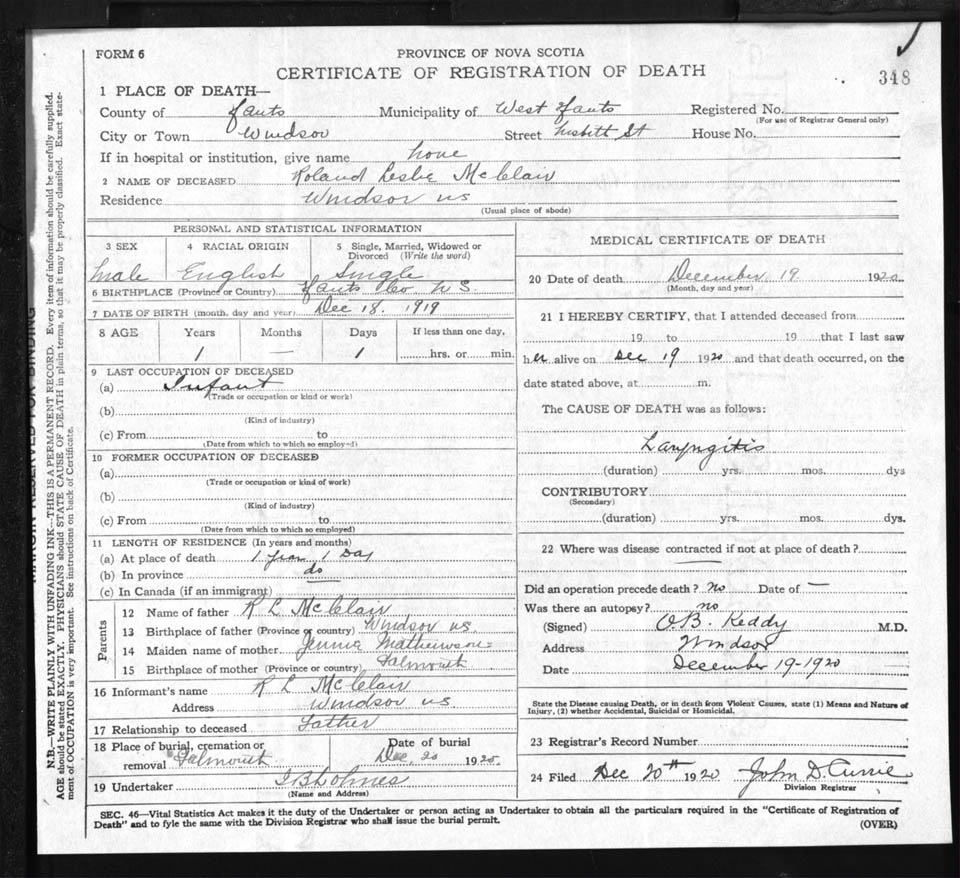 FORM 6
PROVINCE OF NOVA SCOTIA
CERTIFICATE OF REGISTRATION OF DEATH
348
1 PLACE OF DEATH—
County of Hants Municipality of West Hants Registered No.
(For use of Registrar General only)
City or Town Windsor Street Nesbitt St House No.
If in hospital or institution, give name home
2 NAME OF DECEASED Roland Leslie McClair
Residence Windsor NS
(Usual place of abode)
PERSONAL AND STATISTICAL INFORMATION
3 SEX 4 RACIAL ORIGIN 5 Single, Married, Widowed or Divorced (Write the word)
Male English Single
6 BIRTHPLACE (Province or Country) Hants Co N S.
7 DATE OF BIRTH (month, day and year) Dec 18. 1919
8 AGE Years Months Days If less than one day,
1 — 1 hrs. or min.
9 LAST OCCUPATION OF DECEASED
(a) Infant
(Trade or occupation or kind or work)
(b)
(Kind of industry)
(c) From to
(Date from which to which so employed)
10 FORMER OCCUPATION OF DECEASED
(a)
(Trade or occupation or kind of work)
(b)
(Kind of industry)
(c) From to
(Date from which to which so employed)
11 LENGTH OF RESIDENCE (In years and months)
(a) At place of death 1 year 1 Day
(b) In province do
(c) In Canada (if an immigrant)
Parents
12 Name of father R L McClair
13 Birthplace of father (Province or country) Windsor NS
14 Maiden name of mother Jennie
15 Birthplace of mother (Province or country) Falmouth
16 Informant's name R L McClair
Address Windsor NS
17 Relationship to deceased Father
18 Place of burial, cremation or removal Falmouth Date of burial Dec. 20 1920.
19 Undertaker
(Name and Address)
MEDICAL CERTIFICATE OF DEATH
20 Date of death December 19 1920.
(Month, day and year)
21 I HEREBY CERTIFY, that I attended deceased from
19 to 19 that I last saw
her alive on Dec 19 1920 and that death occurred, on the
date stated above, at m.
The CAUSE OF DEATH was as follows:
Laryngitis
(duration) yrs. mos. dys
CONTRIBUTORY
(Secondary)
(duration) yrs. mos. dys.
22 Where was disease contracted if not at place of death?
—
Did an operation precede death? No Date of —
Was there an autopsy? no
(Signed) O.B. Keddy M.D.
Address Windsor
Date December 19-1920
State the Disease causing Death, or in death from Violent Causes, state (1) Means and Nature of
Injury, (2) whether Accidental, Suicidal or Homicidal.
23 Registrar's Record Number
24 Filed Dec 20th 1920 John D. Currie
Division Registrar
SEC. 46—Vital Statistics Act makes it the duty of the Undertaker or person acting as Undertaker to obtain all the particulars required in the "Certificate of Registration of
Death" and to fyle the same with the Division Registrar who shall issue the burial permit.
(OVER)
MARGIN RESERVED FOR BINDING
N.B.—WRITE PLAINLY WITH UNFADING INK—THIS IS A PERMANENT RECORD. Every item of information should be carefully supplied.
AGE should be stated EXACTLY. PHYSICIANS should STATE CAUSE OF DEATH in plain terms, so that it may be properly classified. Exact state-
ment of OCCUPATION is very important. See instructions on back of Certificate.